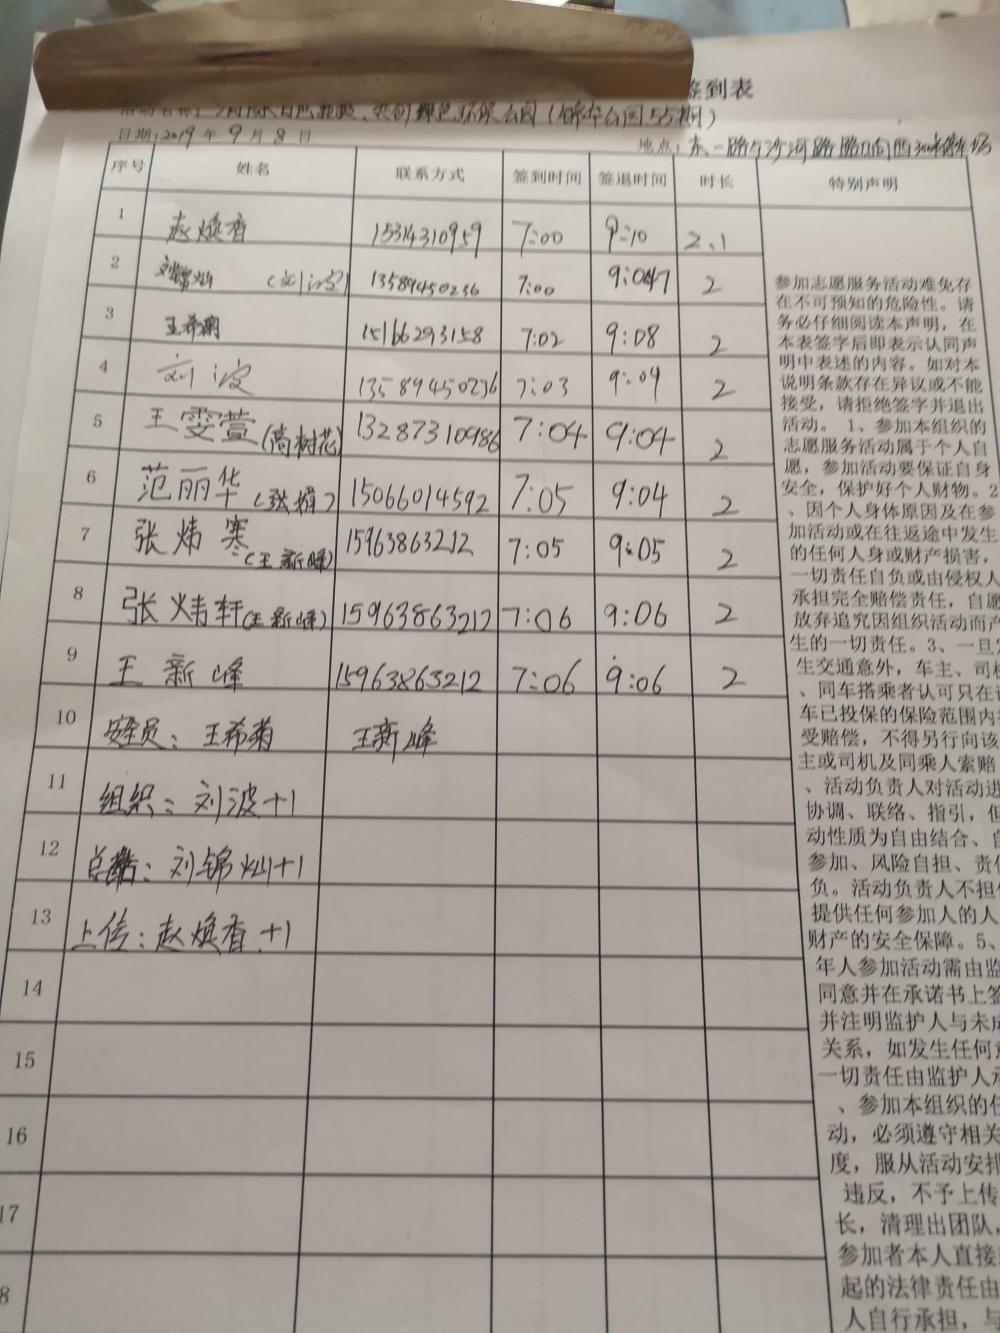 签到表
共创绿色环保公园(锦华公园55期)
日期:2019年9月8日
地点:东一路与沙河路路口向西300米
序号 姓名 联系方式 签到时间 签退时间 时长 特别声明
1 赵焕香 15314310959 7:00 9:10 2.1
2 刘锦灿 (刘波) 13589450236 7:00 2
3 王希菊 15166293158 7:02 9:08 2
4 刘波 13589450236 7:03 9:04 2
5 王雯萱(高树花) 13287310986 7:04 9:04 2
6 范丽华(张娟) 15066014592 7:05 9:04 2
7 张炜寒(王新峰) 15963863212 7:05 9:05 2
8 张炜轩(王新峰) 15963863212 7:06 9:06 2
9 王新峰 15963863212 7:06 9:06 2
10 安全员:王希菊 王新峰
11 组织:刘波+1
12 总结:刘锦灿+1
13 上传:赵焕香+1
14
15
16
17
8
参加志愿服务活动难免存
在不可预知的危险性。请
务必仔细阅读本声明,在
本表签字后即表示认同声
明中表述的内容。如对本
说明条款存在异议或不能
接受,请拒绝签字并退出
活动。 1、参加本组织的
志愿服务活动属于个人自
愿,参加活动要保证自身
安全,保护好个人财物。2
、因个人身体原因及在参
加活动或在往返途中发生
的任何人身或财产损害,
一切责任自负或由侵权人
承担完全赔偿责任,自愿
放弃追究因组织活动而产
生的一切责任。3、一旦
生交通意外,车主、司机
、同车搭乘者认可只在
车已投保的保险范围内
受赔偿,不得另行向该
主或司机及同乘人索赔
、活动负责人对活动进
协调、联络、指引,但
动性质为自由结合、自
参加、风险自担、责任
负。活动负责人不担
提供任何参加人的人
财产的安全保障。5、
年人参加活动需由监
同意并在承诺书上签
并注明监护人与未成
关系,如发生任何
一切责任由监护人
、参加本组织的任
动,必须遵守相关
度,服从活动安排
违反,不予上传
长,清理出团队,
参加者本人直接
起的法律责任由
人自行承担,与